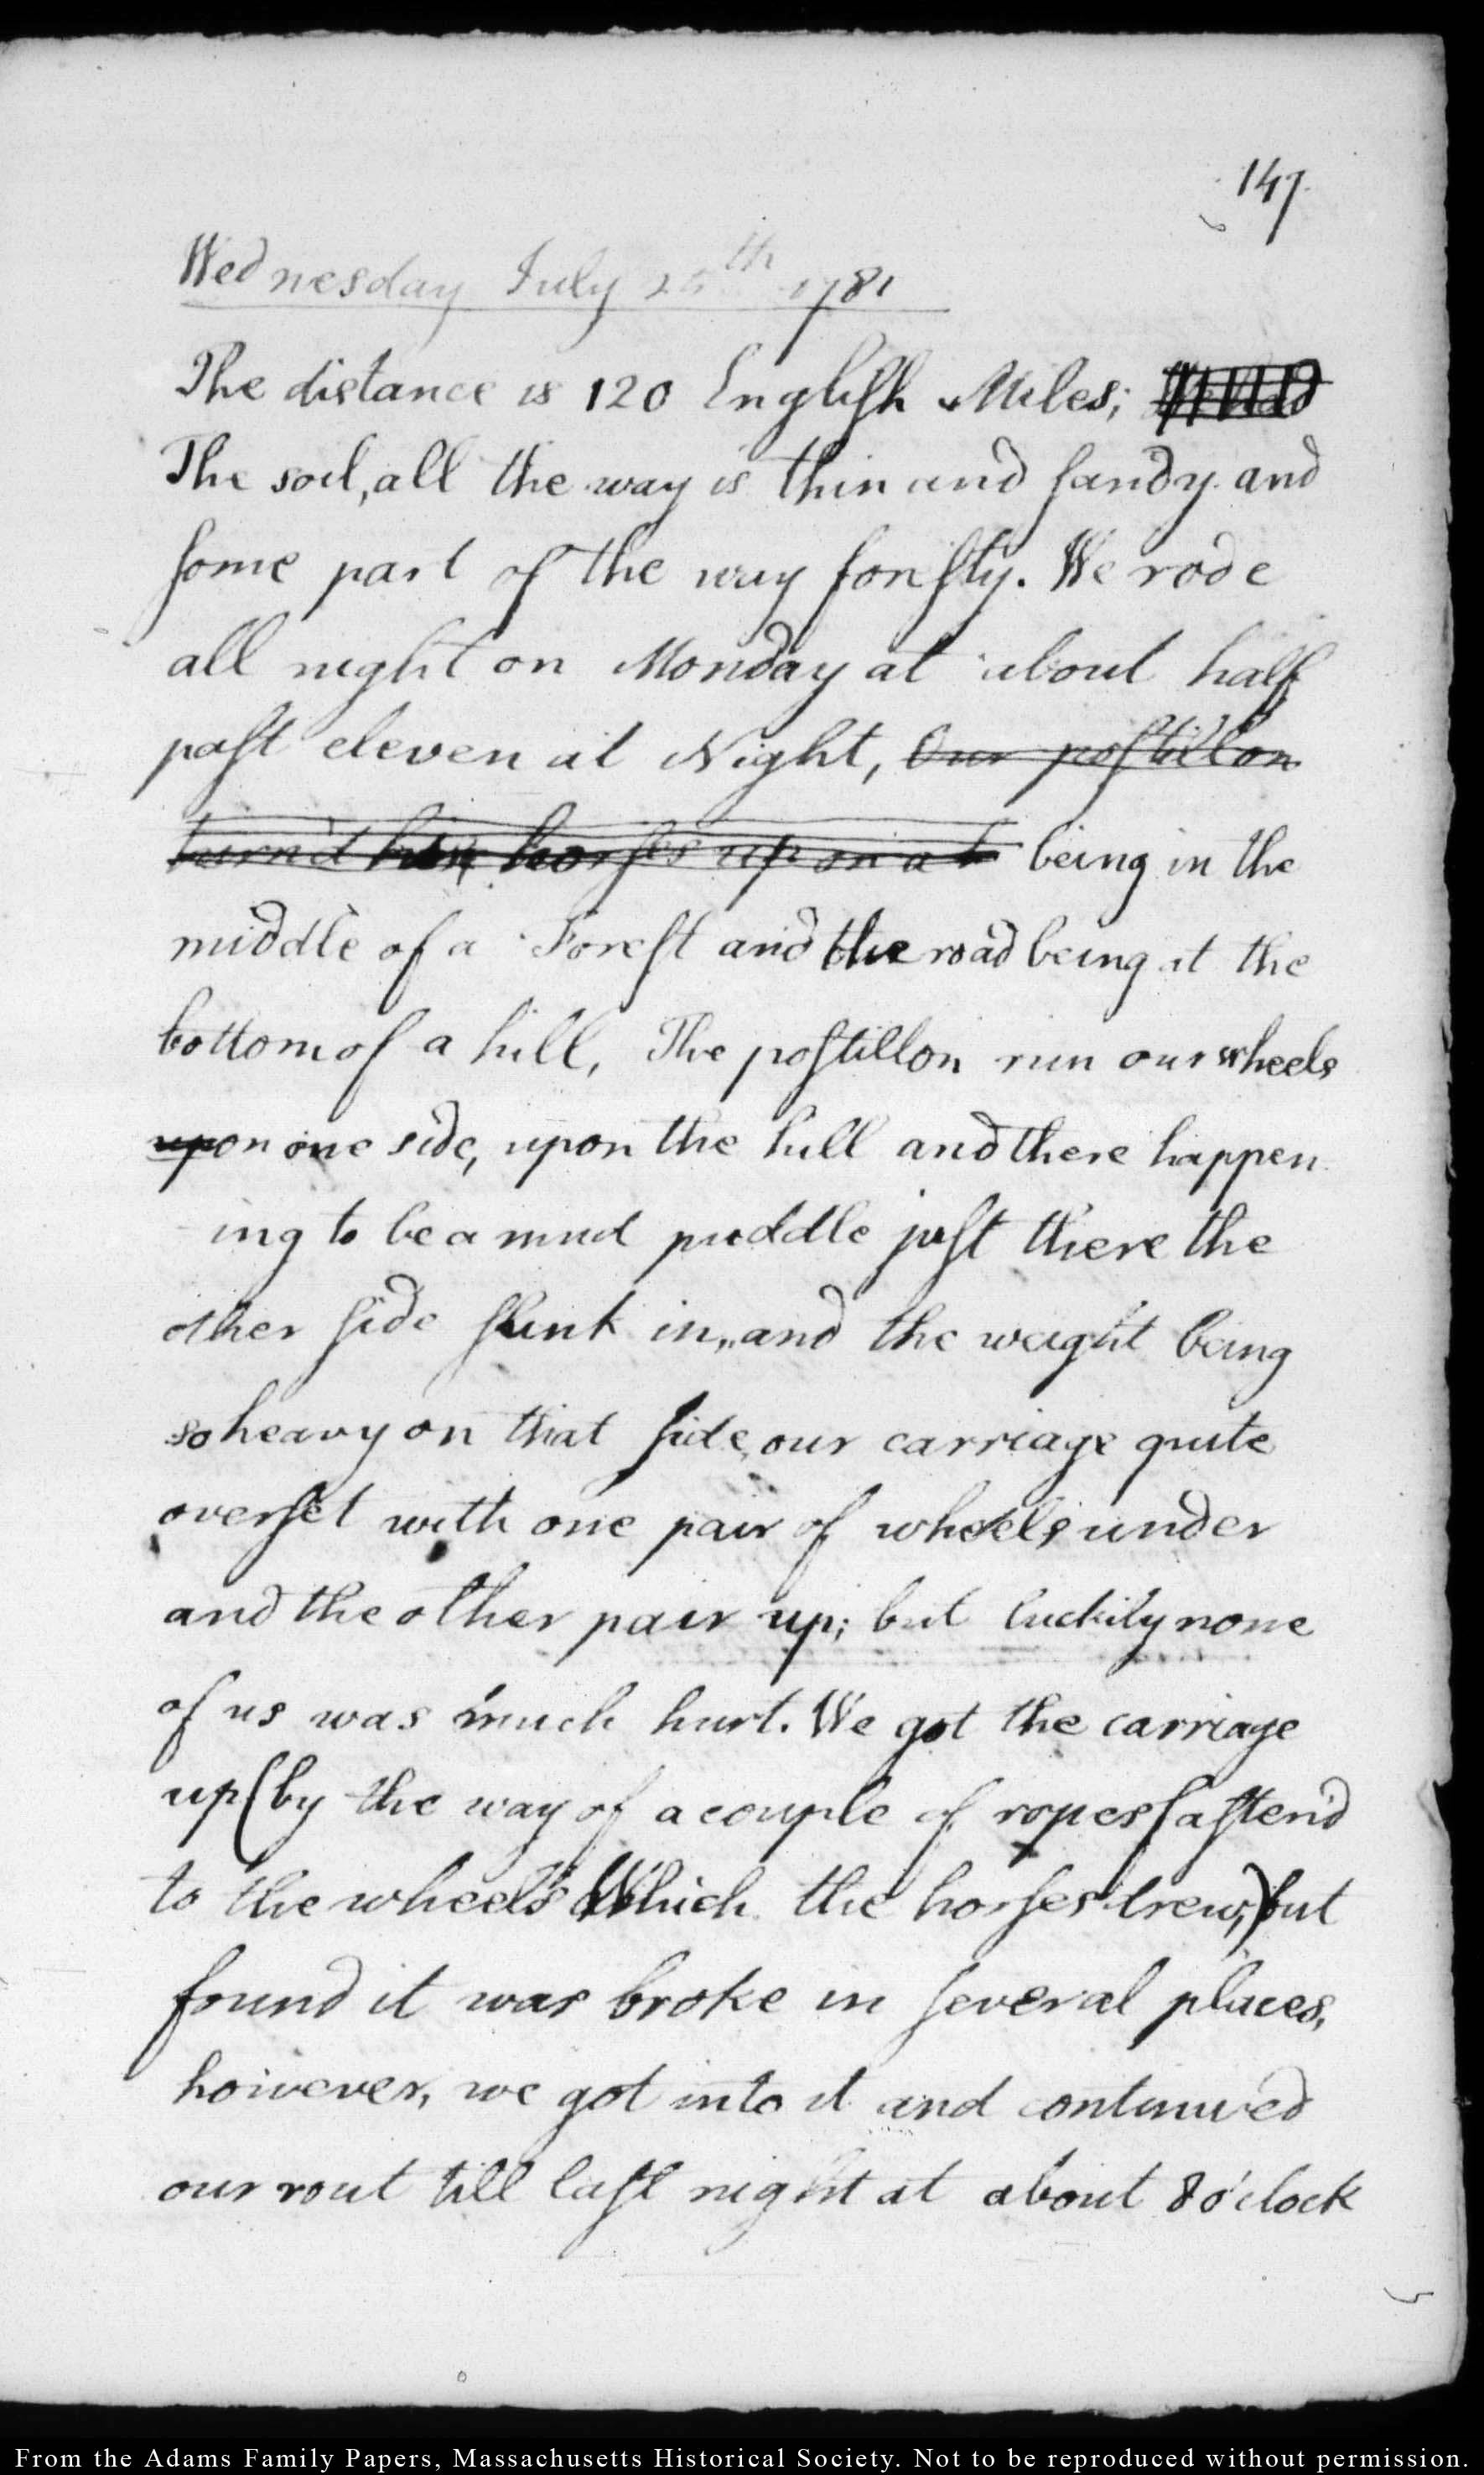 147
Wednesday July 25th 1781
The distance is 120 English Miles;
The soil, all the way is thin and sandy and
some part of the way foresty. We rode
all night on Monday at about half
past eleven at Night, Our postillon
turn'd his horses up on at being in the
middle of a Forest and the road being at the
bottom of a hill, The postillon run our wheels
upon one side, upon the hill and there happen
ing to be a mud puddle just there the
other side sunk in, and the weight being
so heavy on that side, our carriage quite
overset with one pair of wheels under
and the other pair up; but luckily none
of us was much hurt. We got the carriage
up (by the way of a couple of ropes fasten'd
to the wheels Which the horses drew,) but
found it was broke in several places,
however, we got into it and continued
our rout till last night at about 8 o'clock
From the Adams Family Papers, Massachusetts Historical Society. Not to be reproduced without permission.